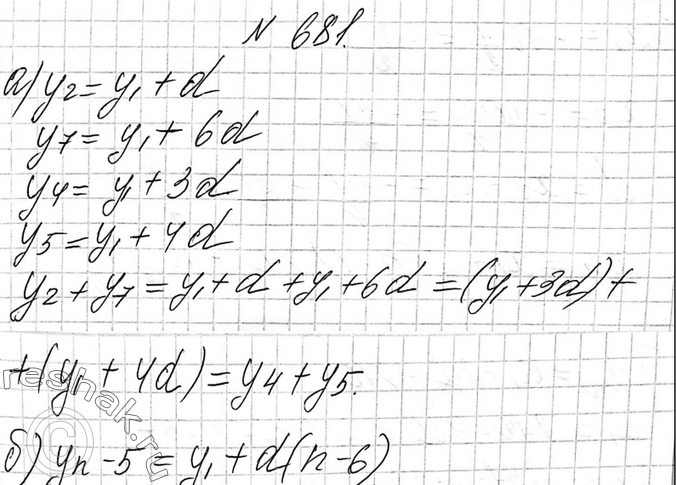 № 681.
а) y₂ = y₁ + d
y₇ = y₁ + 6d
y₄ = y₁ + 3d
y₅ = y₁ + 4d
y₂ + y₇ = y₁ + d + y₁ + 6d = (y₁ + 3d) +
+ (y₁ + 4d) = y₄ + y₅.
б) yₙ₋₅ = y₁ + d(n - 6)
© reshak.ru